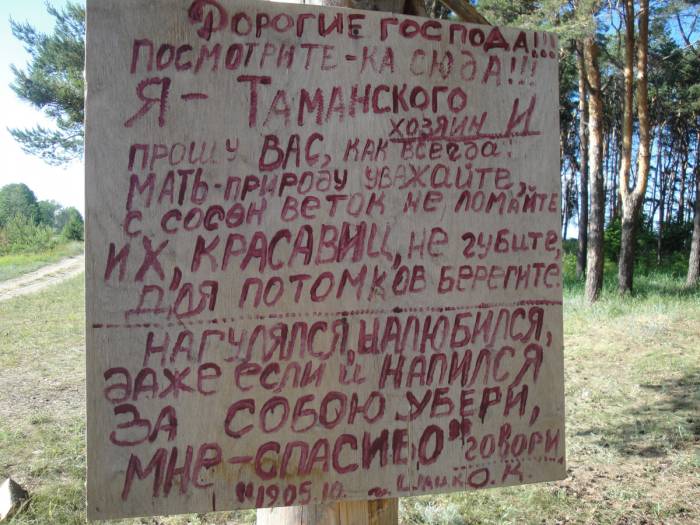 Дорогие господа!!!
ПОСМОТРИТЕ-КА СЮДА!!!
Я - ТАМАНСКОГО
ХОЗЯИН И
ПРОШУ ВАС, КАК ВСЕГДА:
МАТЬ-ПРИРОДУ УВАЖАЙТЕ,
С СОСОН ВЕТОК НЕ ЛОМАЙТЕ
ИХ, КРАСАВИЦ, НЕ ГУБИТЕ,
ДЛЯ ПОТОМКОВ БЕРЕГИТЕ.
НАГУЛЯЛСЯ, НАЛЮБИЛСЯ,
ДАЖЕ ЕСЛИ И НАПИЛСЯ
ЗА СОБОЮ УБЕРИ,
МНЕ-СПАСИБО" ГОВОРИ
"1905.10.